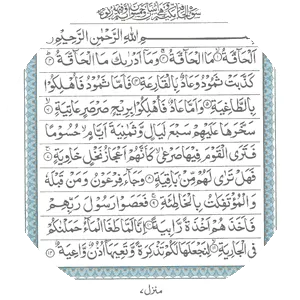 بسم الله الرحمن الرحيم
اَلْحَآقَّةُ ۙ مَا الْحَآقَّةُ ۚ وَمَآ اَدْرٰىكَ مَا الْحَآقَّةُ ؕ
كَذَّبَتْ ثَمُوْدُ وَعَادٌۢ بِالْقَارِعَةِ فَاَمَّا ثَمُوْدُ فَاُهْلِكُوْا
بِالطَّاغِيَةِ وَاَمَّا عَادٌ فَاُهْلِكُوْا بِرِيْحٍ صَرْصَرٍ عَاتِيَةٍ
سَخَّرَهَا عَلَيْهِمْ سَبْعَ لَيَالٍ وَّثَمٰنِيَةَ اَيَّامٍ حُسُوْمًا
فَتَرَى الْقَوْمَ فِيْهَا صَرْعٰى كَاَنَّهُمْ اَعْجَازُ نَخْلٍ خَاوِيَةٍ
فَهَلْ تَرٰى لَهُمْ مِّنْۢ بَاقِيَةٍ وَجَآءَ فِرْعَوْنُ وَمَنْ قَبْلَهٗ
وَالْمُؤْتَفِكٰتُ بِالْخَاطِئَةِ فَعَصَوْا رَسُوْلَ رَبِّهِمْ
فَاَخَذَهُمْ اَخْذَةً رَّابِيَةً اِنَّا لَمَّا طَغَا الْمَآءُ حَمَلْنٰكُمْ
فِي الْجَارِيَةِ لِنَجْعَلَهَا لَكُمْ تَذْكِرَةً وَّتَعِيَهَآ اُذُنٌ وَّاعِيَةٌ ۱۲
منزل ۷